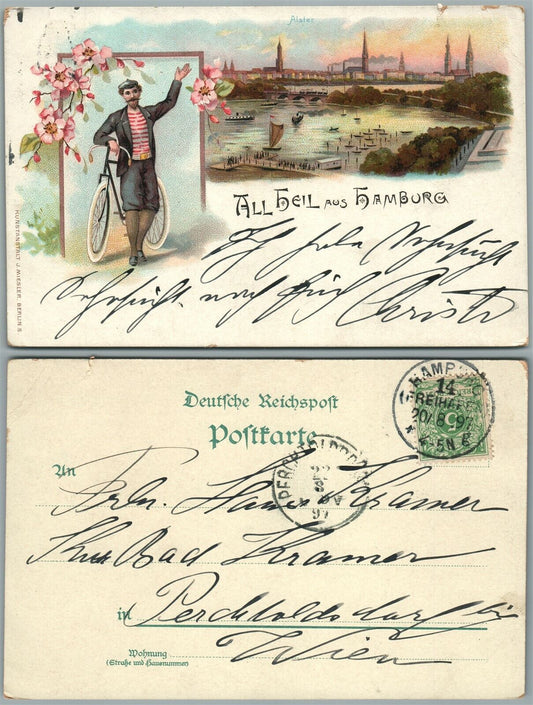 Alster
ALL HEIL AUS HAMBURG
KUNSTANSTALT J. MIESLER, BERLIN S.
Ich habe Sehnsucht
Sehnsucht nach
Deutsche Reichspost
Postkarte
HAMBURG
14
FREIHAFEN
20/8 97
4-5N
PERCHTOLDSDORF
97
An
Kramer
Bad Kramer
in Perchtoldsdorf bei
Wien
Wohnung
(Straße und Hausnummer)